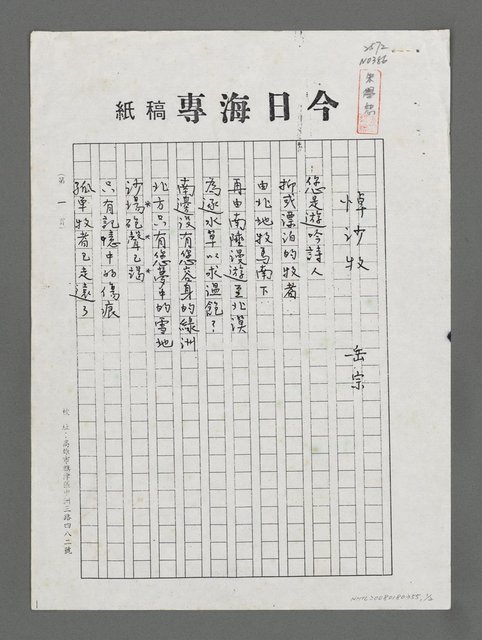 25/2
N0386
今日海專稿紙
悼沙牧
岳宗
您是遊吟詩人
抑或漂泊的牧者
由北地牧馬南下
再由南陲漫遊至北漠
為逐水草以求溫飽？
南邊沒有您容身的綠洲
北方只有您夢中的雪地
沙場砲聲已渴
只有記憶中的傷痕
孤單牧者已走遠了
(第一頁)
校址：高雄市旗津區中洲三路四八二號
NMTL20080180355, 1/2